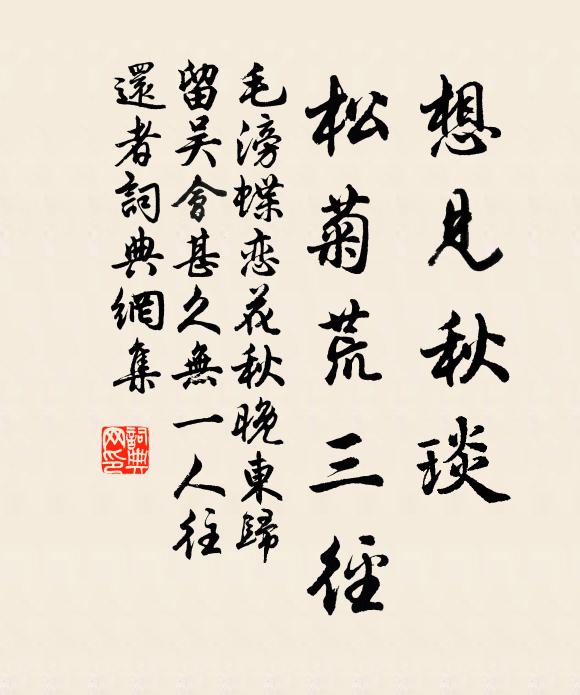 想見秋琰
松菊荒三徑
毛滂蝶恋花秋晚東歸
留吴會甚久無一人往
還者詞典網集
詞典
网印